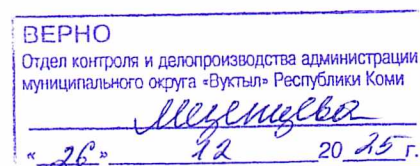 ВЕРНО
Отдел контроля и делопроизводства администрации
муниципального округа «Вуктыл» Республики Коми
"26" 12 2025 г.